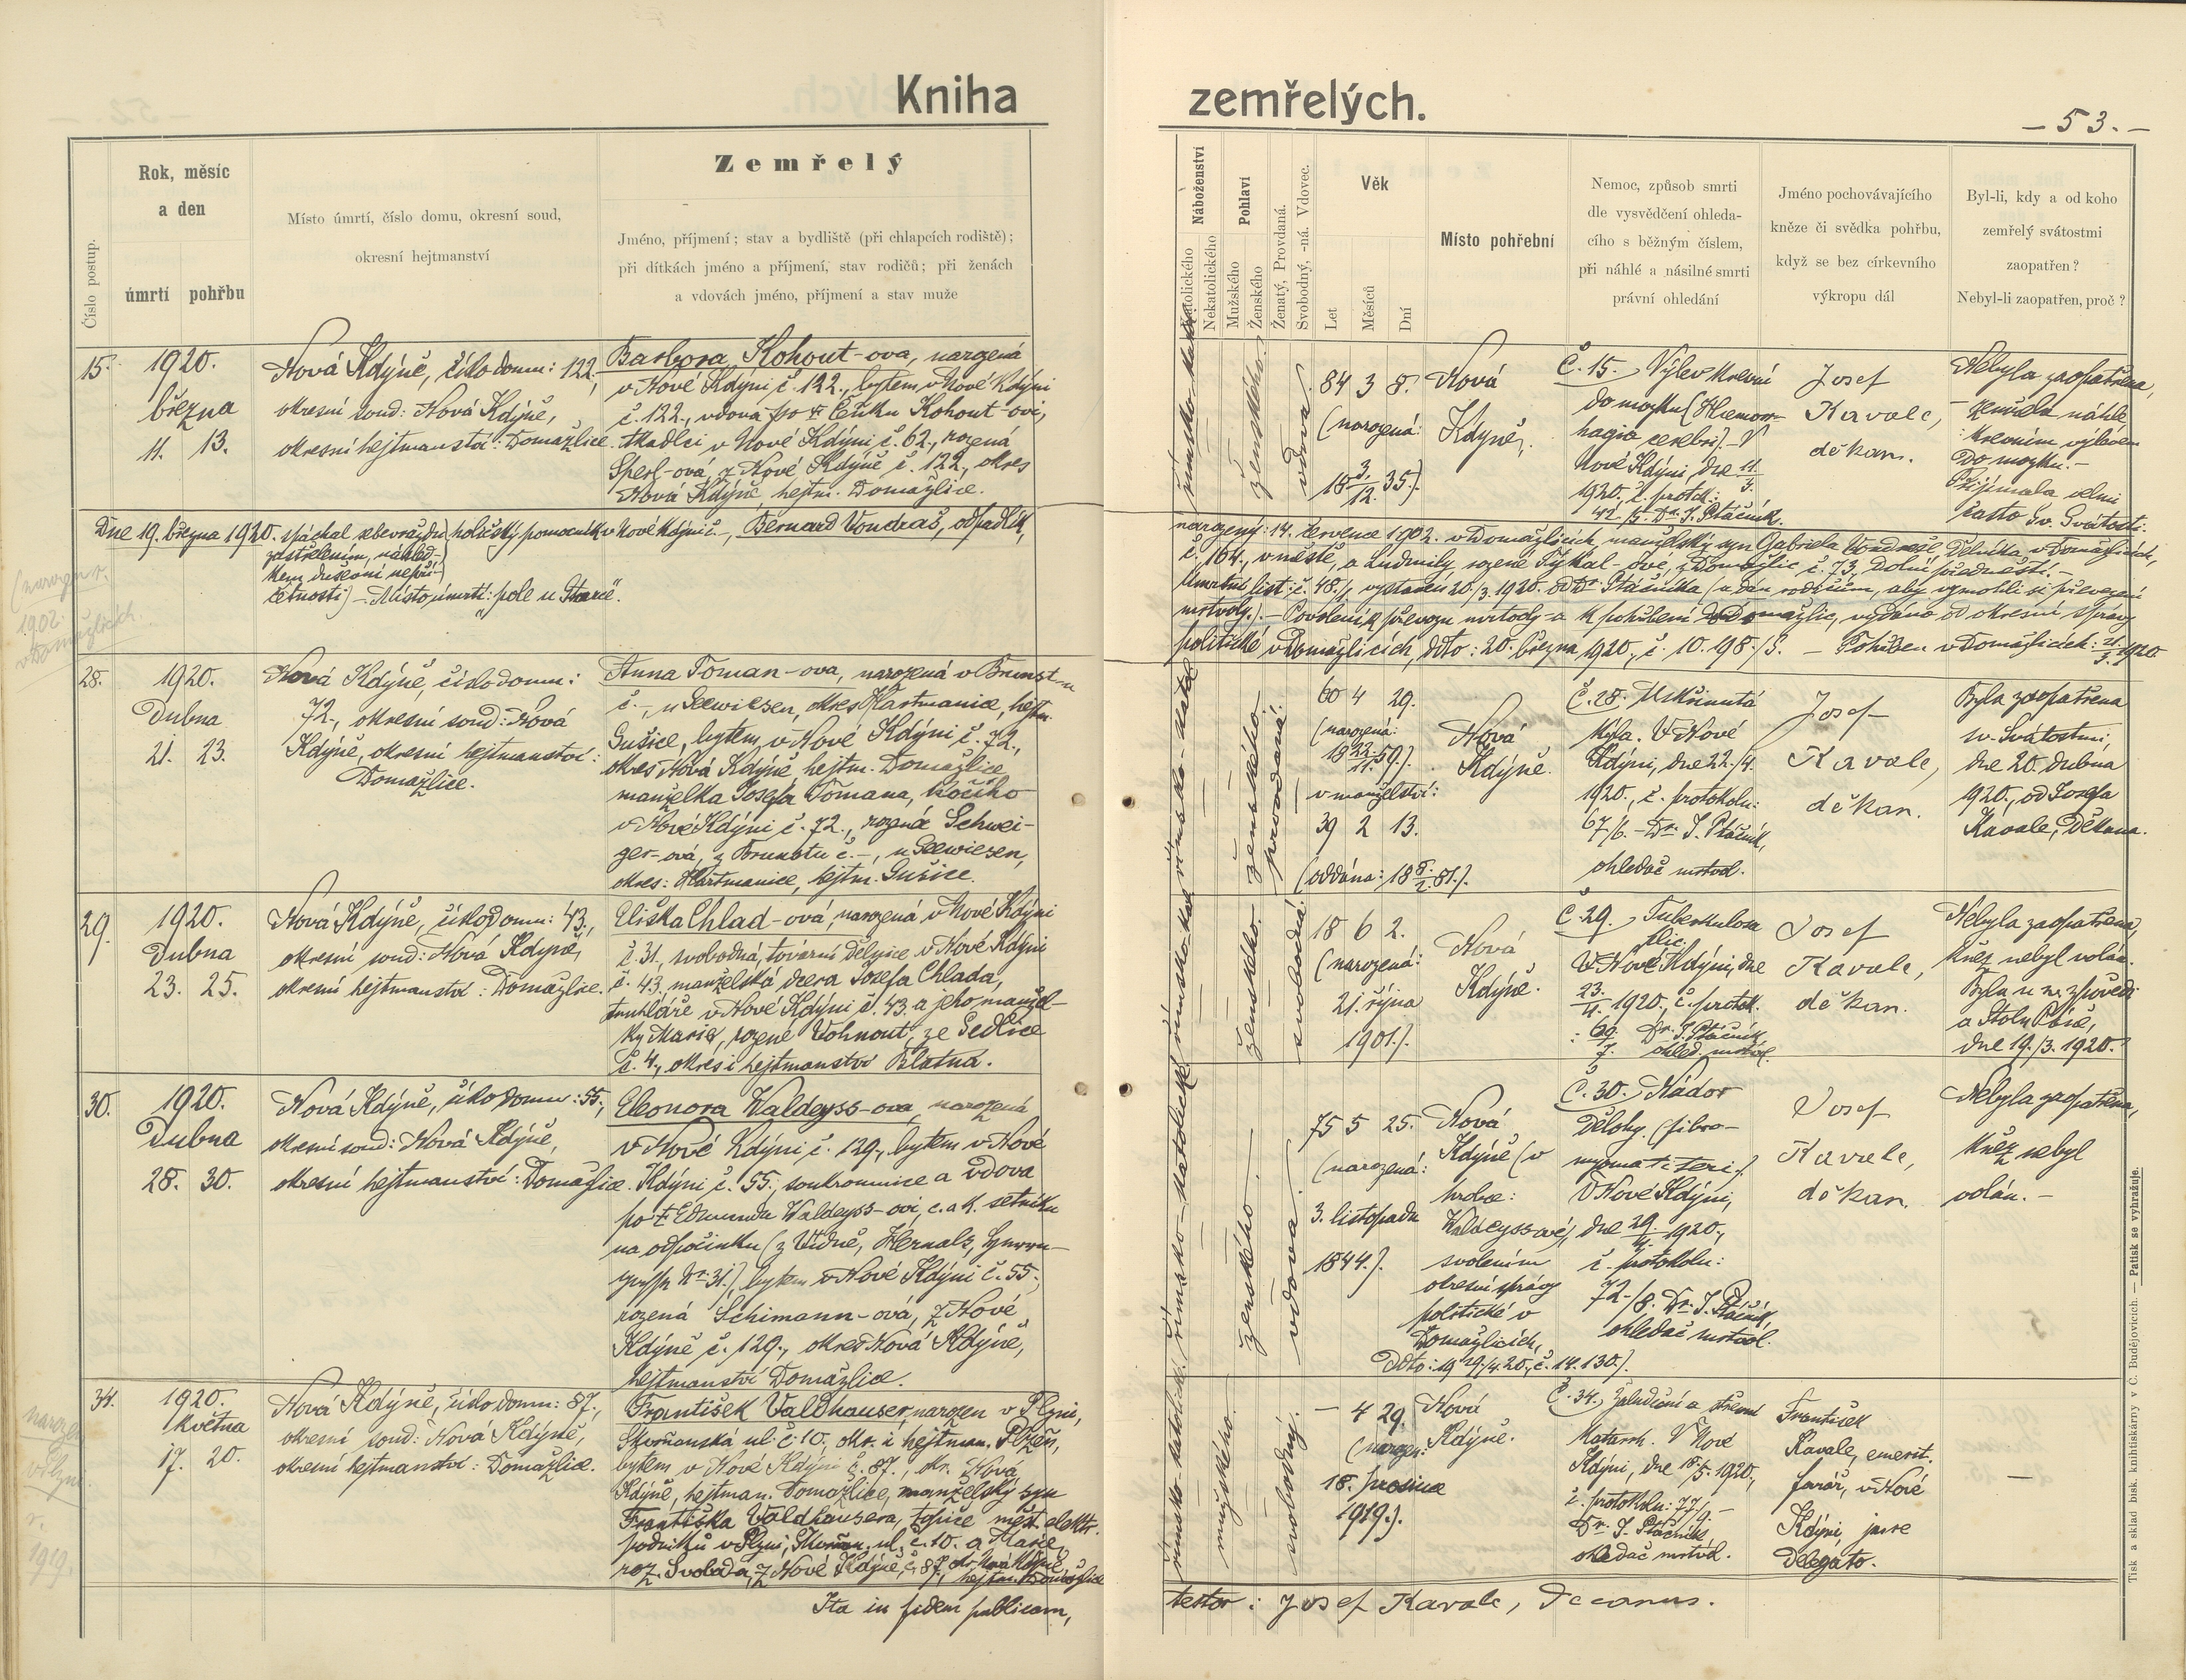 Kniha
zemřelých.
— 53. —
Číslo postup.
Rok, měsíc
a den
úmrtí pohřbu
Místo úmrtí, číslo domu, okresní soud,
okresní hejtmanství
Zemřelý
Jméno, příjmení; stav a bydliště (při chlapcích rodiště);
při dítkách jméno a příjmení, stav rodičů; při ženách
a vdovách jméno, příjmení a stav muže
Náboženství
Katolického
Nekatolického
Pohlaví
Mužského
Ženského
Ženatý, Provdaná.
Svobodný, -ná. Vdovec.
Věk
Let
Měsíců
Dní
Místo pohřební
Nemoc, způsob smrti
dle vysvědčení ohleda-
cího s běžným číslem,
při náhlé a násilné smrti
právní ohledání
Jméno pochovávajícího
kněze či svědka pohřbu,
když se bez církevního
výkropu dál
Byl-li, kdy a od koho
zemřelý svátostmi
zaopatřen?
Nebyl-li zaopatřen, proč?
15.
1920.
března
11. 13.
Nová Kdýně, číslo domu: 122,
okresní soud: Nová Kdýně,
okresní hejtmanství: Domažlice.
Barbora Kohout-ova, narozená
v Nové Kdýni č. 122., bytem v Nové Kdýni
č. 122., vdova po † Čeňku Kohout-ovi,
tkadlci v Nové Kdýni č. 62., rozená
Sperl-ová, z Nové Kdýně č. 122., okres
Nová Kdýně, hejtm. Domažlice.
římsko-katol.
ženského.
vdova.
84 3 8.
(narozená:
18 3/12. 35.)
Nová
Kdýně.
Č. 15. Výlev krevní
do mozku (Haemorr-
hagia cerebri). V
Nové Kdýni, dne 11/3.
1920. č. protok.:
42./5. Dr. J. Ptáčník.
Josef
Kavale,
děkan.
Nebyla zaopatřena,
zemřela náhle
krevním výlevem
do mozku.—
Přijímala velmi
často sv. Svátosti.
Dne 19. března 1920. spáchal sebevraždu holičský pomocník v Nové Kdýni č. —, Bernard Vondraš, odpadlík,
zastřelením, násled-
kem duševní nepří-
četnosti) — Místo úmrtí: pole u Staré.
narozený: 14. července 1902. v Domažlicích, manželský syn Gabriela Vondraše, dělníka v Domažlicích,
č. 164., v městě, a Ludmily, rozené Tykal-ové, z Domažlic č. 73. Dolní předměstí.—
Úmrtní list: č. 48./1, vystaven 20./3. 1920. od Dr. Ptáčníka (udán rodičům, aby vymohli si převezení
mrtvoly.).— Povolení k převozu mrtvoly a k pohřbení do Domažlic, vydáno od okresní správy
politické v Domažlicích, ddto: 20. března 1920., č. 10.198./3. — Pohřben v Domažlicích: 21/3. 1920.
(narozen r.
1902.
v Domažlicích.
28.
1920.
Dubna
21. 23.
Nová Kdýně, číslo domu:
72., okresní soud: Nová
Kdýně, okresní hejtmanství:
Domažlice.
Anna Toman-ova, narozená v Brunstu
č.—, u Seewiesen, okres Hartmanice, hejtm.
Sušice, bytem v Nové Kdýni č. 72.,
okres Nová Kdýně, hejtm. Domažlice,
manželka Josefa Tomana, kočího
v Nové Kdýni č. 72., rozená Schwei-
ger-ová, z Brunstu č.—, u Seewiesen,
okres: Hartmanice, hejtm. Sušice.
římsko-katolické
ženského
provdaná.
60 4 29.
(narozená:
18 22/11. 59.)
v manželství:
39 2 13.
(oddána: 18 8./2. 81.)
Nová
Kdýně.
Č. 28. Uskřinutá
kýla. V Nové
Kdýni, dne 22./4.
1920., č. protokolu:
67./6.— Dr. J. Ptáčník,
ohledač mrtvol.
Josef
Kavale,
děkan.
Byla zaopatřena
sv. Svátostmi,
dne 20. dubna
1920., od Josefa
Kavale, Děkana.
29.
1920.
Dubna
23. 25.
Nová Kdýně, číslo domu: 43.,
okresní soud: Nová Kdyně,
okresní hejtmanství: Domažlice.
Eliška Chlad-ová, narozená v Nové Kdýni
č. 31., svobodná, tovární dělnice v Nové Kdýni
č. 43., manželská dcera Josefa Chlada,
truhláře v Nové Kdýni č. 43. a jeho manžel-
ky Marie, rozené Vohnout, ze Sedlice
č. 4., okres i hejtmanství Blatná.
římsko-katolické
ženského.
svobodná.
18 6 2.
(narozená:
21. října
1901.).
Nová
Kdýně.
Č. 29. Tuberkulosa
plic.
V Nové Kdýni, dne
23./4. 1920., č. protok.
: 69./7. Dr. J. Ptáčník
ohled. mrtvol.
Josef
Kavale,
děkan.
Nebyla zaopatřena,
kněz nebyl volán.
Byla u sv. zpovědi
a Stolu Páně,
dne 19./3. 1920.
30.
1920.
Dubna
28. 30.
Nová Kdýně, číslo domu: 55,
okresní soud: Nová Kdýně,
okresní hejtmanství: Domažlice.
Eleonora Waldeyss-ova, narozená
v Nové Kdýni č. 129., bytem v Nové
Kdýni č. 55., soukromnice a vdova
po † Edmundu Waldeyss-ovi, c. a k. setníku
na odpočinku (z Vídně, Hernals,
Nr. 31.), bytem v Nové Kdýni č. 55.,
rozená Schimann-ová, z Nové
Kdýně č. 129., okres Nová Kdýně,
hejtmanství Domažlice.
římsko-katolické
ženského.
vdova.
75 5 25.
(narozená:
3. listopadu
1844.).
Nová
Kdýně (v
hrobce:
Waldeyssově), 
svolením
okresní správy
politické v
Domažlicích,
Ddto: 19 29./4. 20., č. 14.130.).
Č. 30. Nádor
Dělohy. (fibro-
myomat. uteri.)
V Nové Kdýni,
dne 29./4. 1920.,
č. protokolu:
72./8. Dr. J. Ptáčník,
ohledač mrtvol.
Josef
Kavale,
děkan.
Nebyla zaopatřena,
kněz nebyl
volán.—
34.
1920.
května
17. 20.
Nová Kdýně, číslo domu: 87.,
okresní soud: Nová Kdýně,
okresní hejtmanství: Domažlice.
František Valdhauser, narozen v Plzni,
Skvrňanská ul. č. 10., okr. i hejtman. Plzeň,
bytem v Nové Kdýni č. 87., okr. Nová
Kdýně, hejtman. Domažlice, manželský syn
Františka Valdhausera, topiče měst. elektr.
podniků v Plzni, Skvrňan. ul. č. 10. a Marie,
roz. Svoboda, z Nové Kdýně, č. 87., okr. Nová Kdýně,
hejtm. Domažlice
římsko-katolické
mužského.
svobodný.
— 4 29.
(narozen:
18. prosince
1919.).
Nová
Kdýně.
Č. 34. Žaludeční a střevní
katarrh. V Nové
Kdýni, dne 18./5. 1920.,
č. protokolu: 77./9.—
Dr. J. Ptáčník,
ohledač mrtvol.
František
Kavale, emerit.
farář, v Nové
Kdýni, jure
delegato.
—
narozen
v Plzni
r.
1919.
Ita in fidem publicam,
testor: Josef Kavale, Decanus.
Tisk a sklad bisk. knihtiskárny v Č. Budějovicích. — Patisk se vyhražuje.